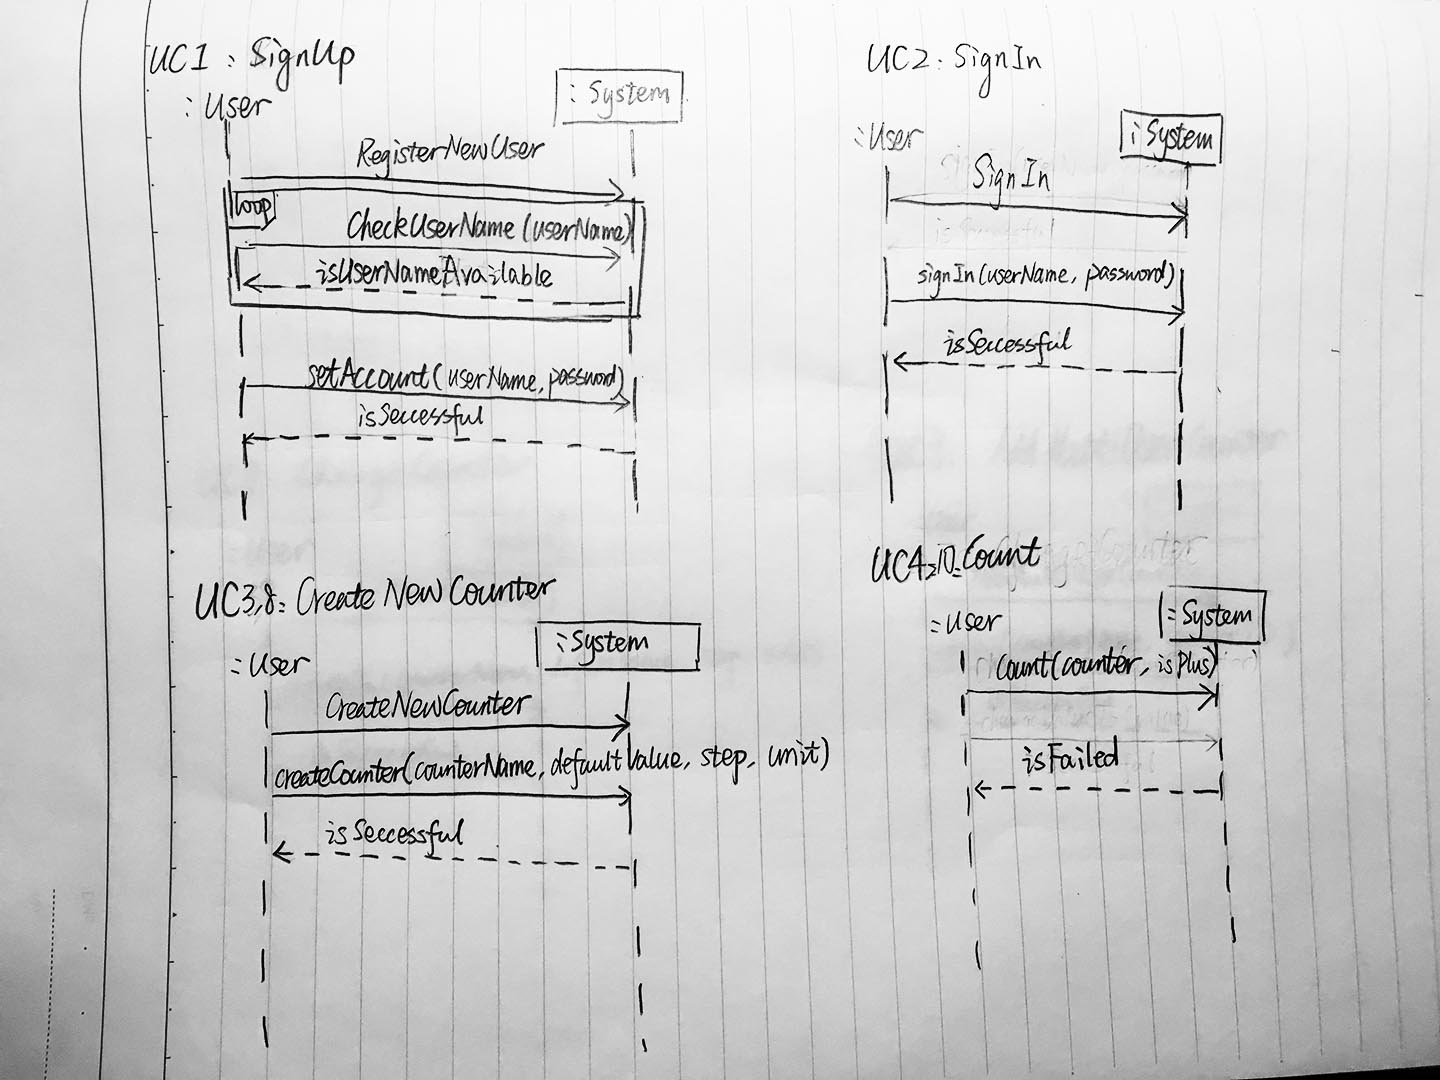 UC1 : SignUp
: User
: System
RegisterNewUser
loop
CheckUserName (userName)
isUserNameAvailable
setAccount (userName, password)
isSeccessful
UC2 : SignIn
: User
: System
SignIn
signIn (userName, password)
isSeccessful
UC3,8 : Create New Counter
: User
: System
CreateNewCounter
createCounter(counterName, defaultValue, step, unit)
isSeccessful
Count
: User
: System
Count(counter, isPlus)
isFailed